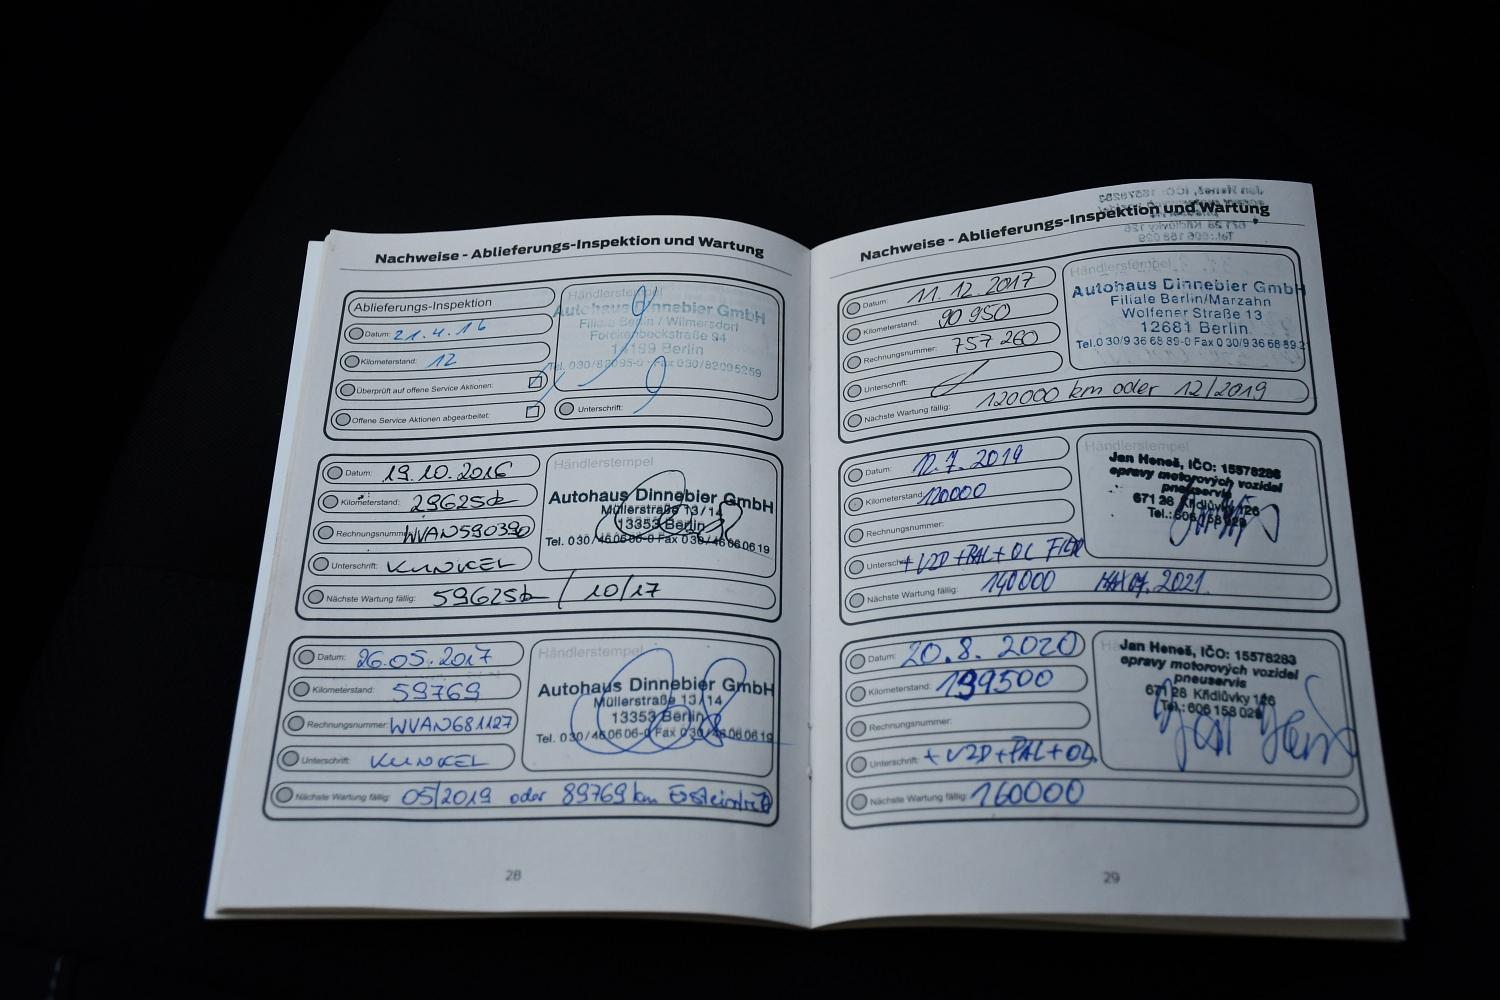 Nachweise - Ablieferungs-Inspektion und Wartung
Ablieferungs-Inspektion
Datum: 21.4.16
Kilometerstand: 12
Überprüft auf offene Service Aktionen:
Offene Service Aktionen abgearbeitet:
Händlerstempel
Autohaus Dinnebier GmbH
Filiale Berlin / Wilmersdorf
Forckenbeckstraße 94
14199 Berlin
Tel. 030/82095-0 - Fax 030/82095259
Unterschrift:
Datum: 19.10.2016
Kilometerstand: 29625
Rechnungsnummer: WVAN590390
Unterschrift: KUNKEL
Nächste Wartung fällig: 59625 / 10/17
Händlerstempel
Autohaus Dinnebier GmbH
Müllerstraße 13/14
13353 Berlin
Tel. 030/460606-0 Fax 030/46060619
Datum: 26.05.2017
Kilometerstand: 59769
Rechnungsnummer: WVAN681127
Unterschrift: KUNKEL
Nächste Wartung fällig: 05/2019 oder 89769 km
Händlerstempel
Autohaus Dinnebier GmbH
Müllerstraße 13/14
13353 Berlin
Tel. 030/460606-0 Fax 030/46060619
28
Nachweise - Ablieferungs-Inspektion und Wartung
Datum: 11.12.2017
Kilometerstand: 90 950
Rechnungsnummer: 757 260
Unterschrift:
Nächste Wartung fällig: 120000 km oder 12/2019
Händlerstempel
Autohaus Dinnebier GmbH
Filiale Berlin/Marzahn
Wolfener Straße 13
12681 Berlin
Tel.0 30/9 36 68 89-0 Fax 0 30/9 36 68 89 2
Datum: 12.7.2019
Kilometerstand: 120000
Rechnungsnummer:
Unterschrift: + VZD + PAL + OL FILTR
Nächste Wartung fällig: 140000 2021
Händlerstempel
Jan Heneš, IČO: 15578283
opravy motorových vozidel
pneuservis
671 28 Křidlůvky 126
Tel.: 606 158 029
Datum: 20.8.2020
Kilometerstand: 139500
Rechnungsnummer:
Unterschrift: + VZD + PAL + OL
Nächste Wartung fällig: 160000
Jan Heneš, IČO: 15578283
opravy motorových vozidel
pneuservis
671 28 Křidlůvky 126
Tel.: 606 158 029
29